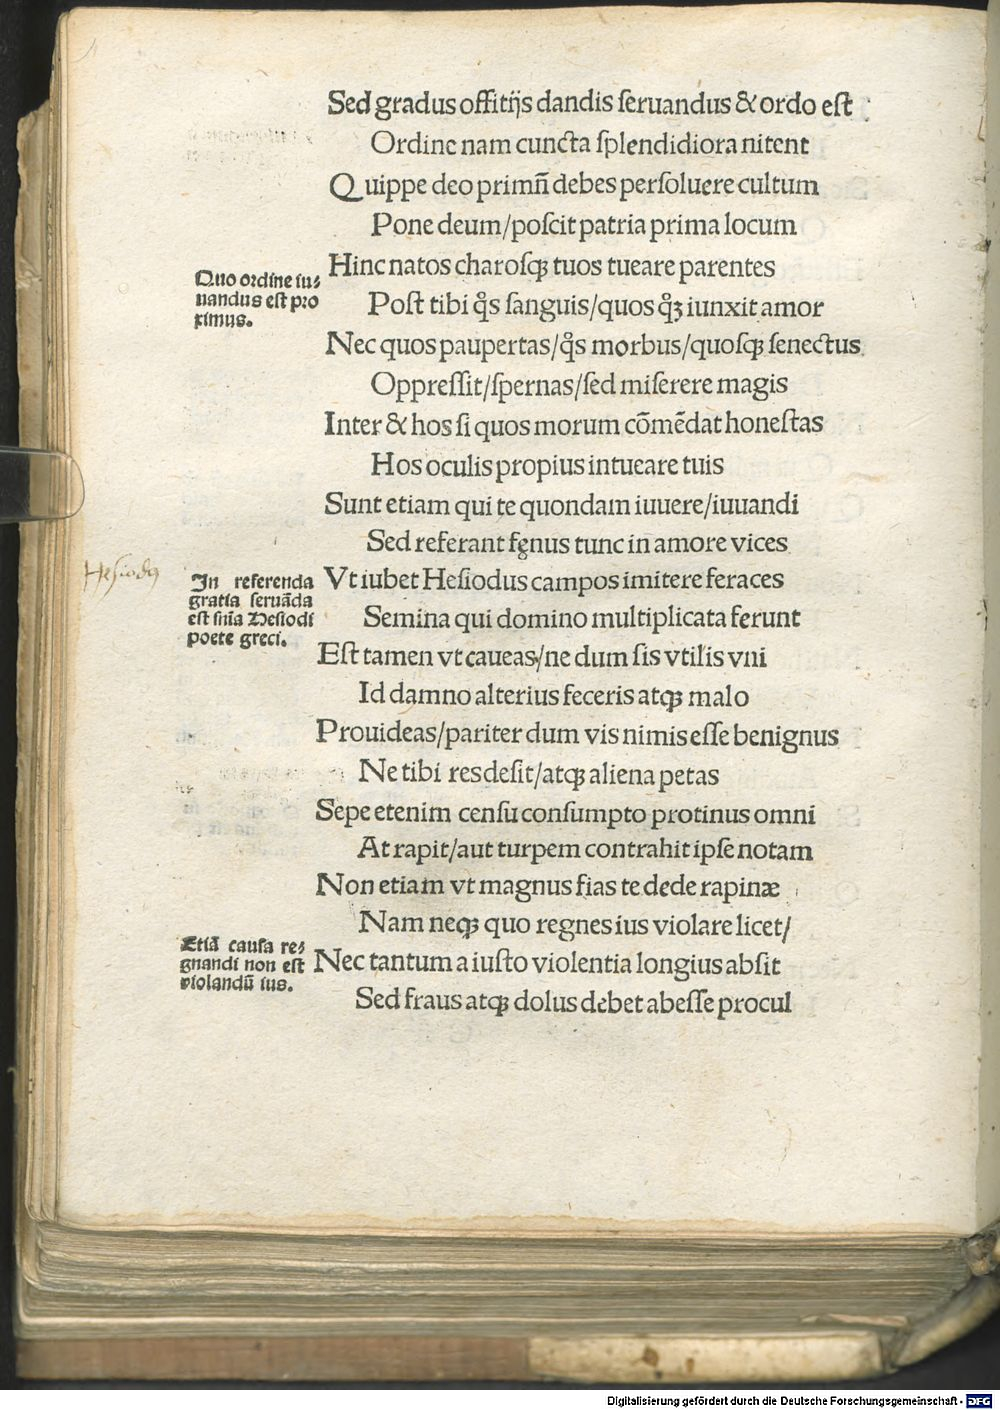 Sed gradus offitijs dandis ſeruandus & ordo eſt
Ordine nam cuncta ſplendidiora nitent
Quippe deo primū debes perſoluere cultum
Pone deum/poſcit patria prima locum
Hinc natos charoſqꝫ tuos tueare parentes
Poſt tibi q̊s ſanguis/quos qꝫ iunxit amor
Nec quos paupertas/q̊s morbus/quoſqꝫ ſenectus
Oppreſſit/ſpernas/ſed miſerere magis
Inter & hos ſi quos morum cōmēdat honeſtas
Hos oculis propius intueare tuis
Sunt etiam qui te quondam iuuere/iuuandi
Sed referant fęnus tunc in amore vices
Vt iubet Heſiodus campos imitere feraces
Semina qui domino multiplicata ferunt
Eſt tamen vt caueas/ne dum ſis vtilis vni
Id damno alterius feceris atqꝫ malo
Prouideas/pariter dum vis nimis eſſe benignus
Ne tibi res deſit/atqꝫ aliena petas
Sepe etenim cenſu conſumpto protinus omni
At rapit/aut turpem contrahit ipſe notam
Non etiam vt magnus fias te dede rapinæ
Nam neqꝫ quo regnes ius violare licet/
Nec tantum a iuſto violentia longius abſit
Sed fraus atqꝫ dolus debet abeſſe procul
Quo ordine iu⸗
uandus eſt pro
ximus.
Hesiodus
In referenda
gratia ſeruāda
eſt ſnīa Heſiodi
poete greci.
Etiā cauſa re⸗
gnandi non eſt
violandū ius.
Digitalisierung gefördert durch die Deutsche Forschungsgemeinschaft - DFG